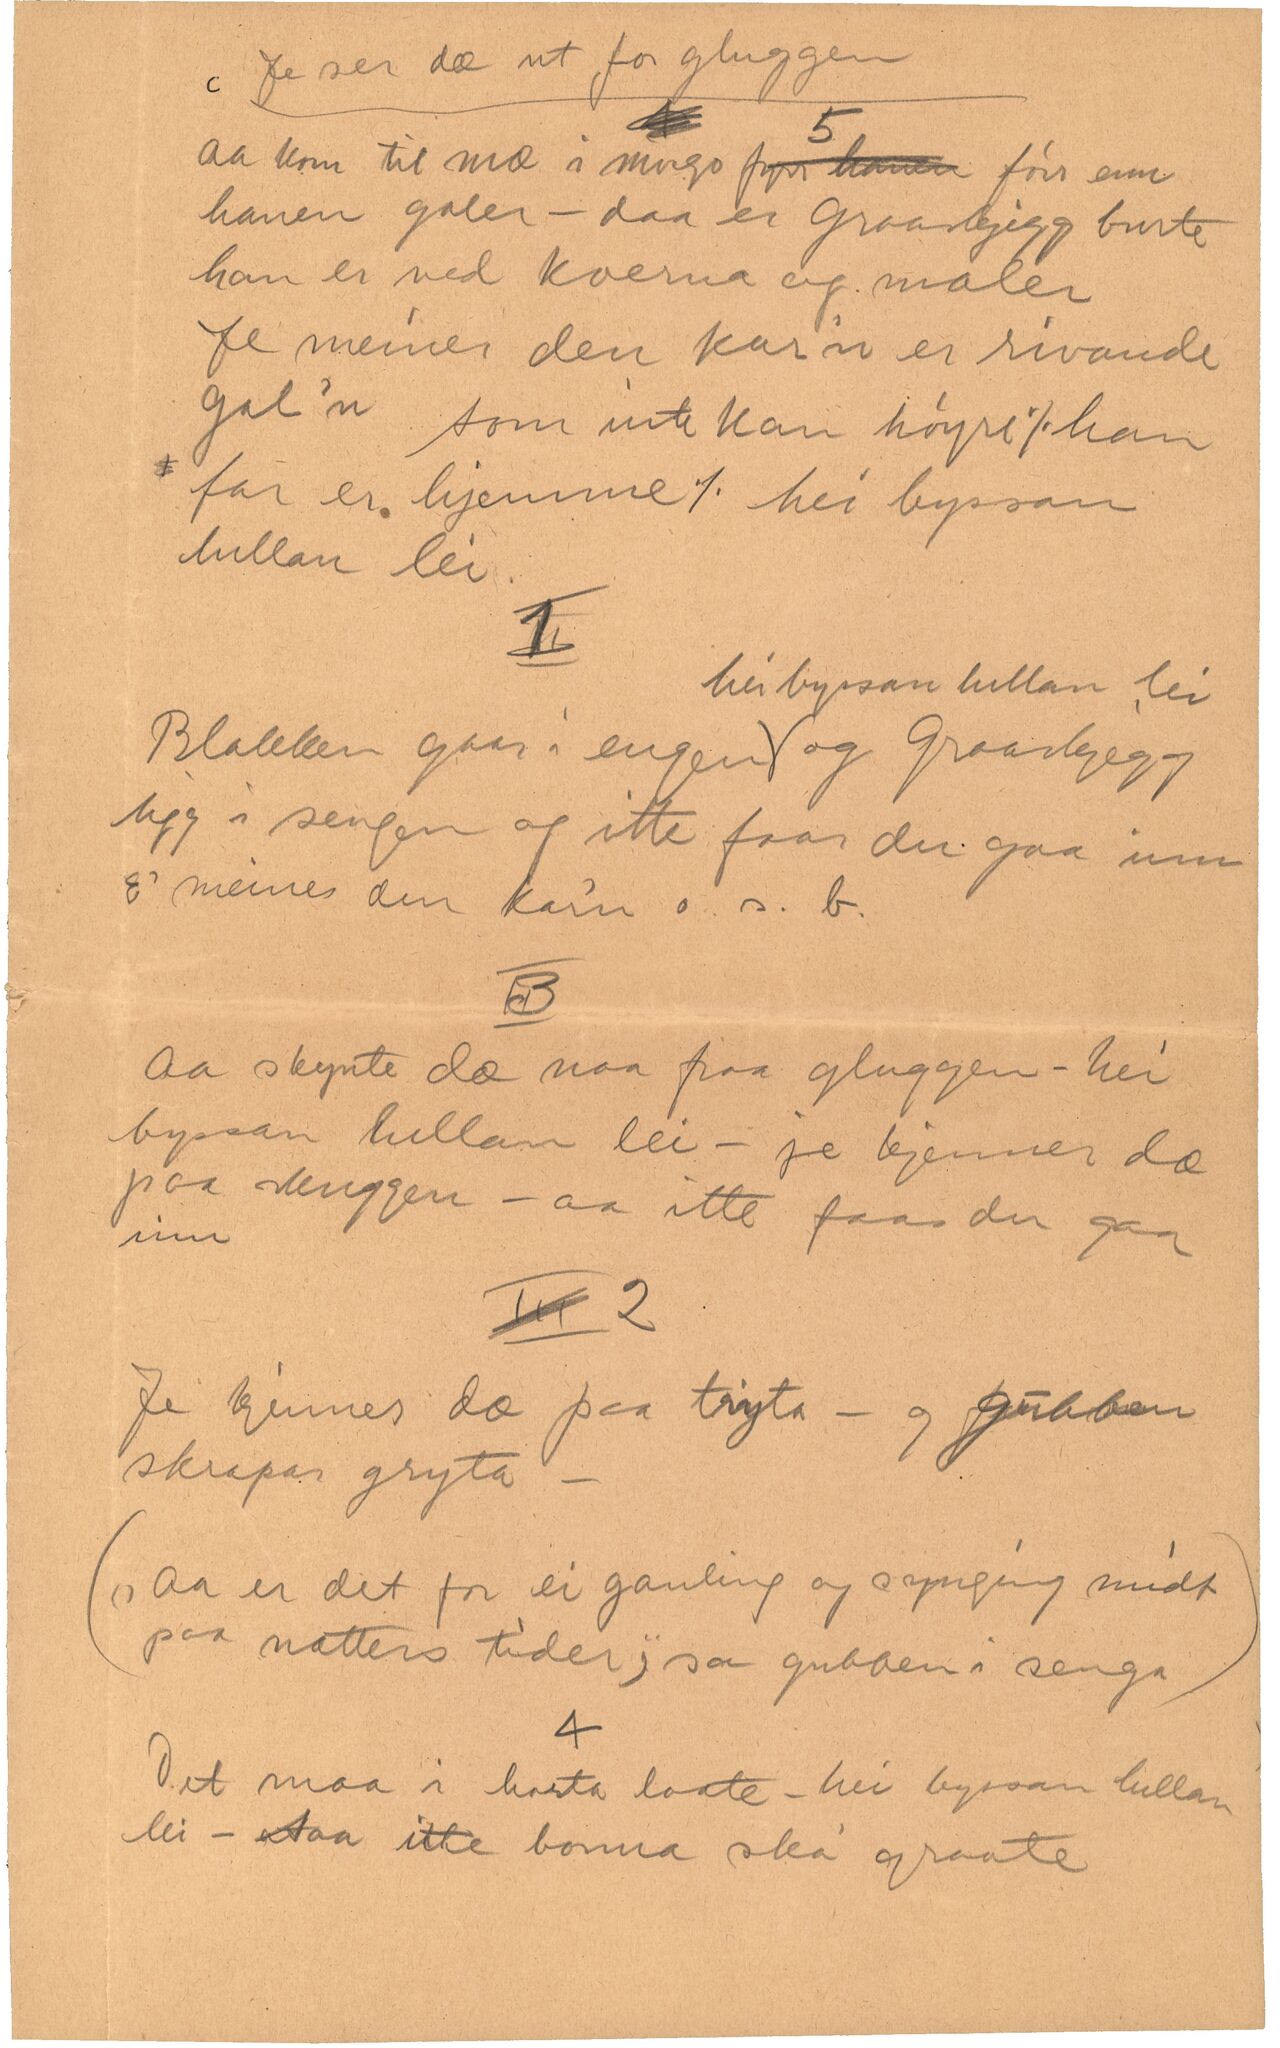 c Je ser dæ ut for gluggen
5
aa kom til mæ i morgo fyrr hanen förr enn
hanen galer – daa er Graaskjegg burte
han er ved kverna og maler
Je meiner den kar'n er rivande
gal'n som inte kan höyre %. han
far er hjemme %. hei byssan
lullan lei.
1
hei byssan lullan lei
Blakken gaar i engen og Graaskjegg
ligg i sengen og itte faar du gaa inn
meines den kar'n o. s. b.
3
Aa skynte dæ naa fraa gluggen – hei
byssan lullan lei – je kjenner dæ
paa skuggen – aa itte faar du gaa
inn
III 2
Je kjennes dæ paa tryta – og gubben
skrapar gryta –
(Aa er det for ei gauling og synging midt
paa natters tider; sa gubben i senga)
4
Det maa i horta laate – hei byssan lullan
lei – aa itte bonna ska graate